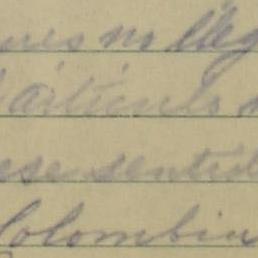 no lleg
articulo
ese sentid
Colombia